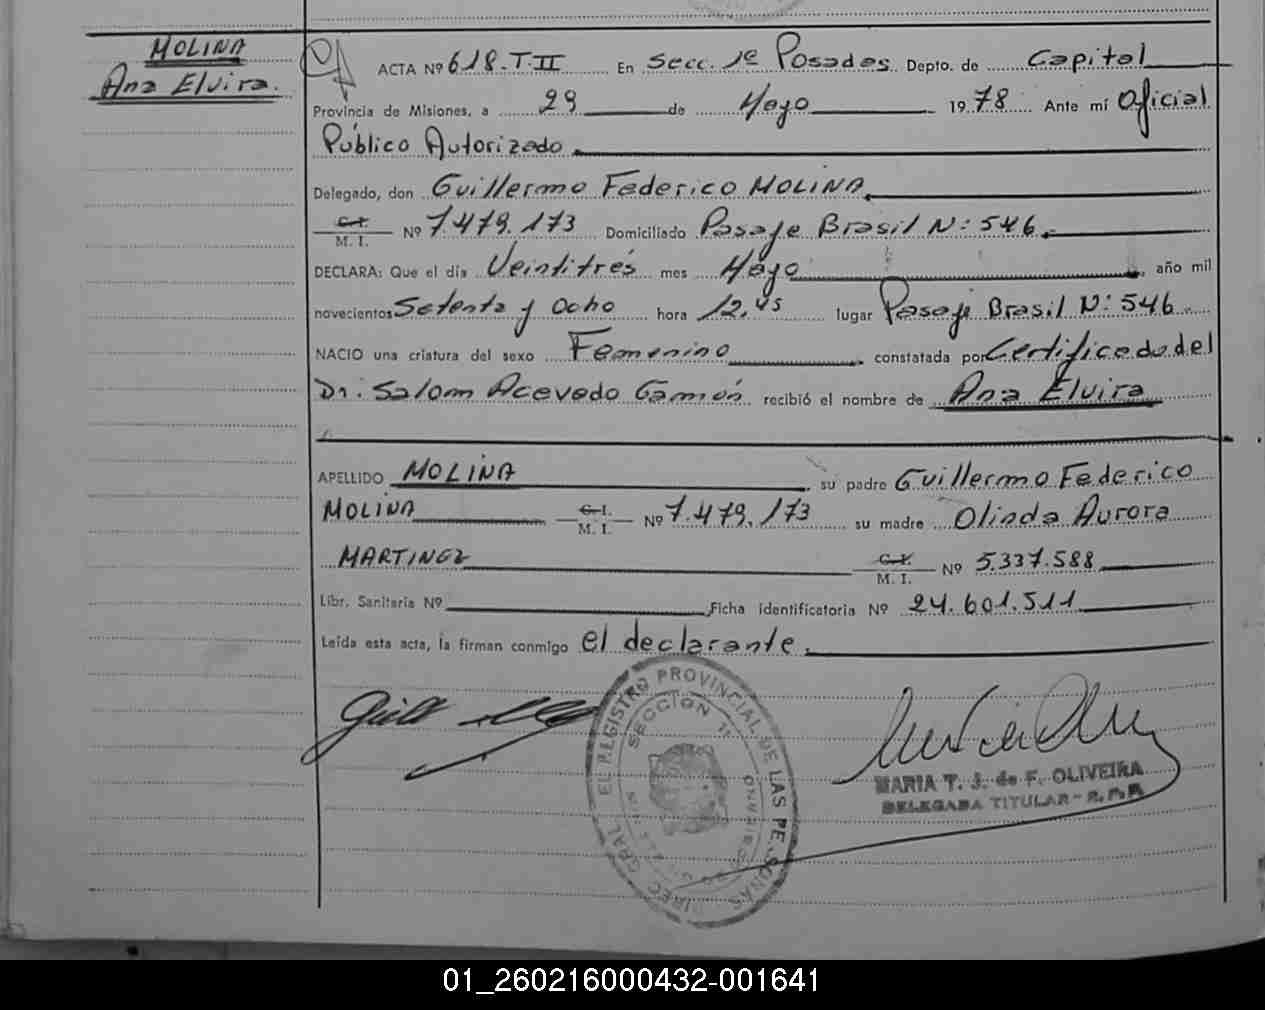 MOLINA
Ana Elvira.
ACTA Nº 618.T.II En Secc. 1º Posadas Depto. de Capital
Provincia de Misiones, a 29 de Mayo 1978 Ante mí Oficial
Público Autorizado
Delegado, don Guillermo Federico MOLINA
C.I.
M. I. Nº 7.479.173 Domiciliado Pasaje Brasil N: 546.
DECLARA: Que el día Veintitrés mes Mayo, año mil
novecientos Setenta y Ocho hora 12,45 lugar Pasaje Brasil N: 546.
NACIO una criatura del sexo Femenino constatada por Certificado del
Dr. Salom Acevedo Gamón recibió el nombre de Ana Elvira
APELLIDO MOLINA, su padre Guillermo Federico
MOLINA C.I.
M. I. Nº 7.479.173 su madre Olinda Aurora
MARTINEZ C.I.
M. I. Nº 5.337.588
Libr. Sanitaria Nº Ficha identificatoria Nº 24.601.511
Leída esta acta, la firman conmigo el declarante.
DIREC GRAL EL REGISTRO PROVINCIAL DE LAS PERSONAS
SECCION 1ª
MARIA T. J. de F. OLIVEIRA
DELEGADA TITULAR - R.P.P.
01_260216000432-001641